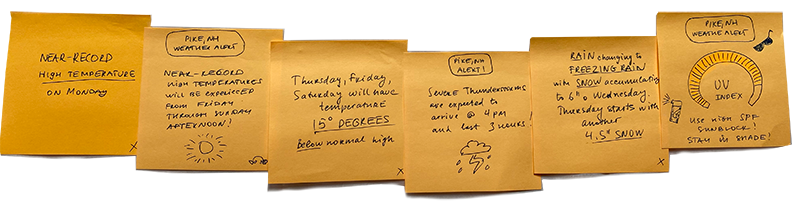 NEAR-RECORD
HIGH TEMPERATURE
ON MONDAY
PIKE, NH
WEATHER ALERT
NEAR-RECORD
HIGH TEMPERATURES
WILL BE EXPERIENCED
FROM FRIDAY
THROUGH SUNDAY
AFTERNOON!
Thursday, Friday,
Saturday will have
temperature
15° DEGREES
below normal high
X
PIKE, NH
ALERT!
SEVERE Thunderstorms
are expected to
arrive @ 4 PM
and last 3 hours!
X
RAIN changing to
FREEZING RAIN
with SNOW accumulating
to 6" Wednesday.
Thursday starts with
another
4.5" SNOW
X
PIKE, NH
WEATHER ALERT
UV
INDEX
USE HIGH SPF
SUNBLOCK!
STAY IN SHADE!